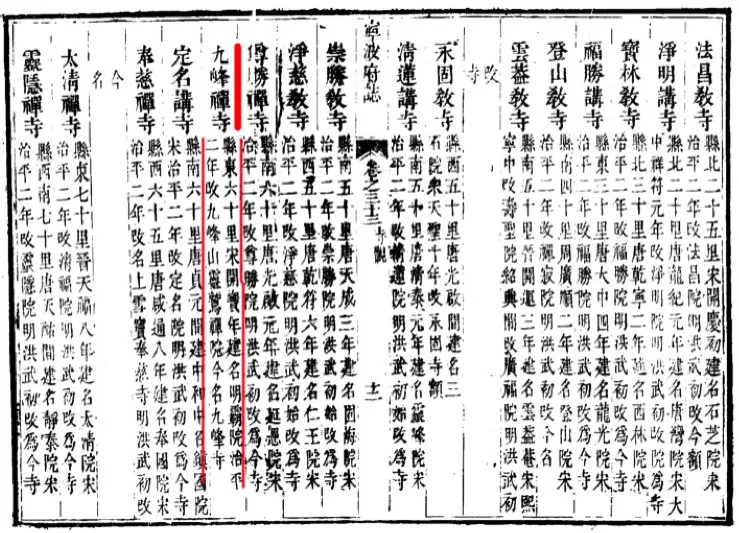 法昌教寺
縣北二十五里宋開慶初建名石芝院宋
治平二年改法昌院明洪武初改今額
淨明講寺
縣北二十里唐龍紀元年建名唐灣院宋大
中祥符元年改淨明院明洪武初改為寺
寶林教寺
縣北三十里唐乾寧二年建名西林院宋
治平二年改寶林院明洪武初改為今寺
福勝講寺
縣東三十里唐大中四年建名龍光院宋
治平二年改福勝院明洪武初改為今寺
登山教寺
縣南四十里周廣順二年建名登山院宋
治平二年改禪寂院明洪武初改今名
雲蓋教寺
縣南五十里晉開運三年建名雲蓋菴宋熙
寧中改壽聖院紹興間改廣福院明洪武初
改寺
永固教寺
縣西五十里唐光啟間建名三
石院宋天聖十年改永固寺額
清蓮講寺
縣南五十里唐清泰元年建名靈峰院宋
治平二年改清蓮院明洪武初始改為寺
寧波府誌
卷之三十三
寺觀
十二
崇勝教寺
縣南五十里唐天成三年建名固海院宋
治平二年改崇勝院明洪武初改為今寺
淨慈教寺
縣西五十里唐乾符六年建名仁王院宋
治平二年改淨慈院明洪武初始改為寺
尊勝禪寺
縣南六十里唐光啟元年建名延恩院宋
治平二年改尊勝院明洪武初改為今寺
九峰禪寺
縣東六十里宋開寶年建名明霸院治平
二年改九峰山靈鷲禪院今名九峰寺
定名講寺
縣南六十里唐貞元間建中和中名鎮國院
宋治平二年改定名院明洪武初改為今寺
奉慈禪寺
縣西六十五里唐咸通八年建名泰國院宋
治平二年改名上雪竇奉慈寺明洪武初改
今名
太清禪寺
縣東七十里晉天福八年建名太清院宋
治平二年改清福院明洪武初改為今寺
靈隱禪寺
縣西南七十里唐天祐間建名靜泰院宋
治平二年改靈隱院明洪武初改為今寺